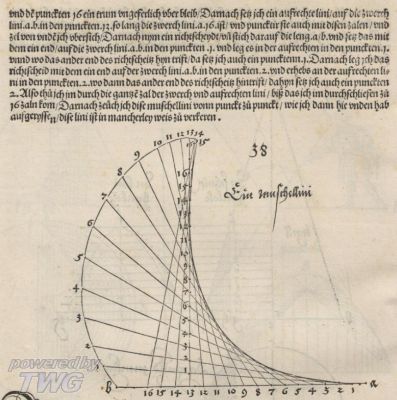 vnd dē puncten 16 ein trum vngeferlich vber bleib / Darnach setz ich ein aufrechte lini / auf die zwerch
lini .a.b. in den puncten .13. so lang die zwerch lini .a.16. ist / vnd punctir sie auch mit disen zalen / vnd
zel von vndē ich obersich / Darnach nym ein richtscheydt / vñ stich darauf die leng .a.b. vnd setz das mit
dem ein end / auf die zwerch lini .a.b. in den puncten .1. vnd leg es in der aufrechten in den puncten .1.
vnnd wo das ander end des richscheitz hyn rürt / da setz ich auch ein punctenn .1. Darnach leg ich das
richscheid mit dem ein end auf der zwerch lini .a.b. in den puncten .2. vnd erhebs an der aufrechten li
ni in den puncten .2. wo dann das ander end des richscheitz hintrift / dahyn setz ich auch ein puncten
2. Also thů ich im durch die gantze zal der zwerch vnd aufrechten lini / biß das ich im durchschliessen zu
16 zaln kom / Darnach zeuch ich diſe muschellini vonn punckt zu punckt / wie ich dann hie vnden hab
auf gerissenn / dise lini ist in mancherley weis zu verkeren .
38
Ein muschellini
12 13 14
11
15 16
10
9
8
7
6
5
4
3
2
1
16
15
14
13
12
11
10
9
8
7
6
5
4
3
2
1
b
16 15 14 13 12 11 10 9 8 7 6 5 4 3 2 1
a
powered by
TWG